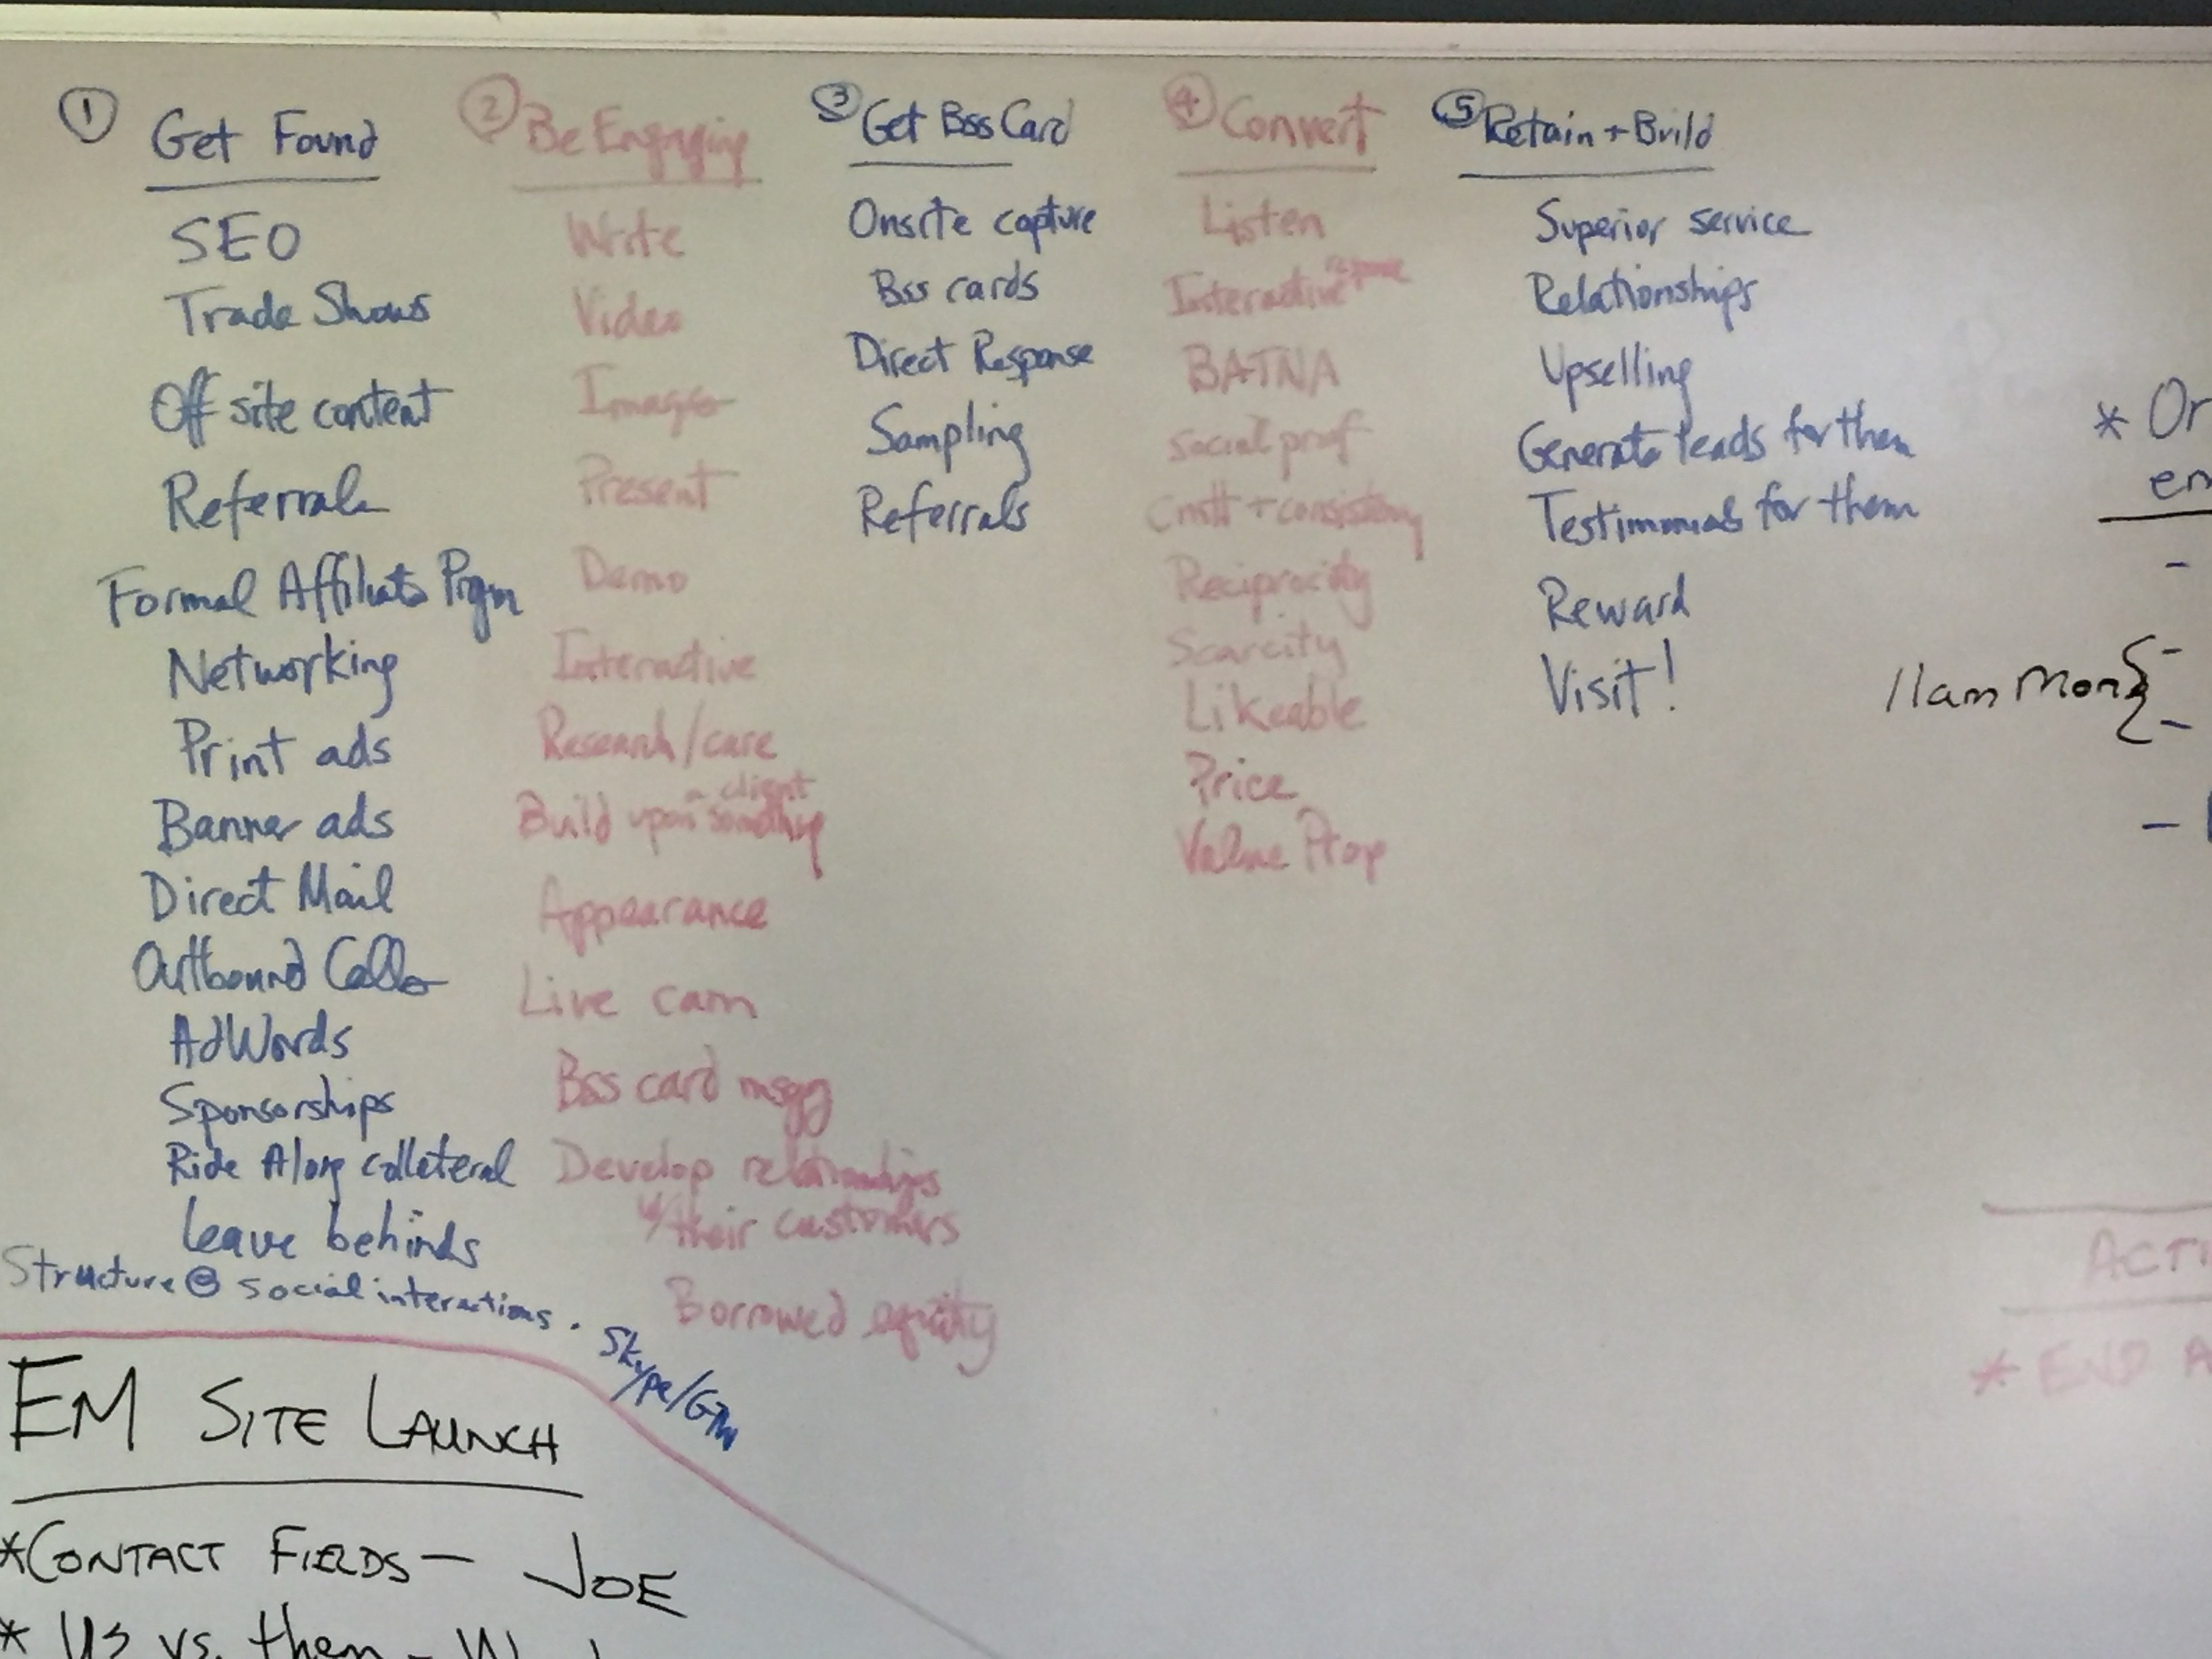 ① Get Found
SEO
Trade Shows
Off site content
Referrals
Formal Affiliate Prgm
Networking
Print ads
Banner ads
Direct Mail
Outbound Calls
AdWords
Sponsorships
Ride Along collateral
Leave behinds
Structure @ social interactions.
Skype/GTM
② Be Engaging
Write
Video
Images
Present
Demo
Interactive
Research/care
Build upon a client something
Appearance
Live cam
Bss card msgg
Develop relationships
w/ their customers
Borrowed equity
③ Get Bss Card
Onsite capture
Bss cards
Direct Response
Sampling
Referrals
④ Convert
Listen
Interactive response
BATNA
Social prof
Cmtt + consistency
Reciprocity
Scarcity
Likeable
Price
Value Prop
⑤ Retain + Build
Superior service
Relationships
Upselling
Generate leads for them
Testimonials for them
Reward
Visit!
* Or
en
11am Mon
ACTI
* END A
EM SITE LAUNCH
* CONTACT FIELDS — JOE
* Us vs. them -